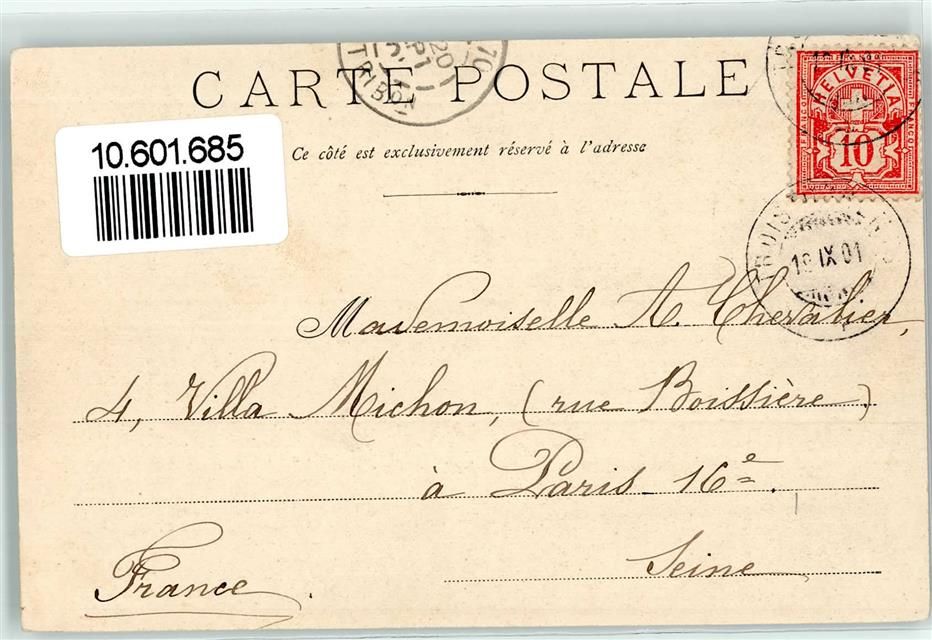 CARTE POSTALE
10.601.685
Ce côté est exclusivement réservé à l'adresse
HELVETIA
10
18 IX 01
Mademoiselle A. Chevalier,
4, Villa Michon, (rue Boissière)
à Paris 16e.
Seine
France